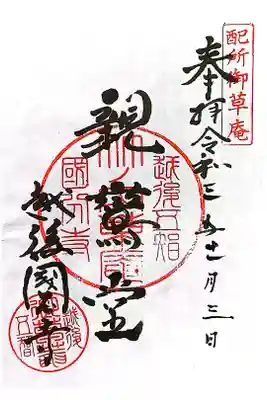 配所御草庵
奉拝 令和三年十一月三日
越後五智
親鸞堂
國分寺
越後國分寺
越後
五智